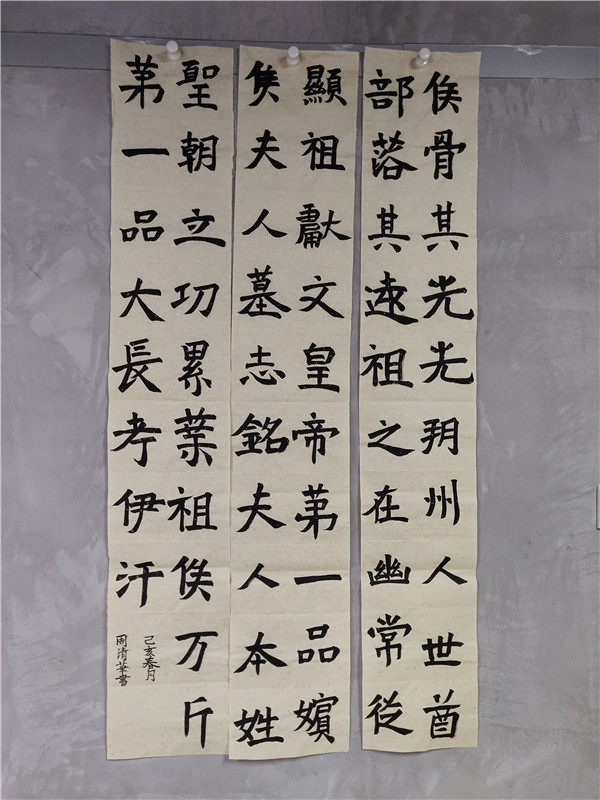 侯骨其先先朔州人世酋
部落其遠祖之在幽常從
顯祖獻文皇帝第一品嬪
侯夫人墓志銘夫人本姓
聖朝立功累葉祖俟万斤
第一品大長考伊汗
己亥春月
周清華書